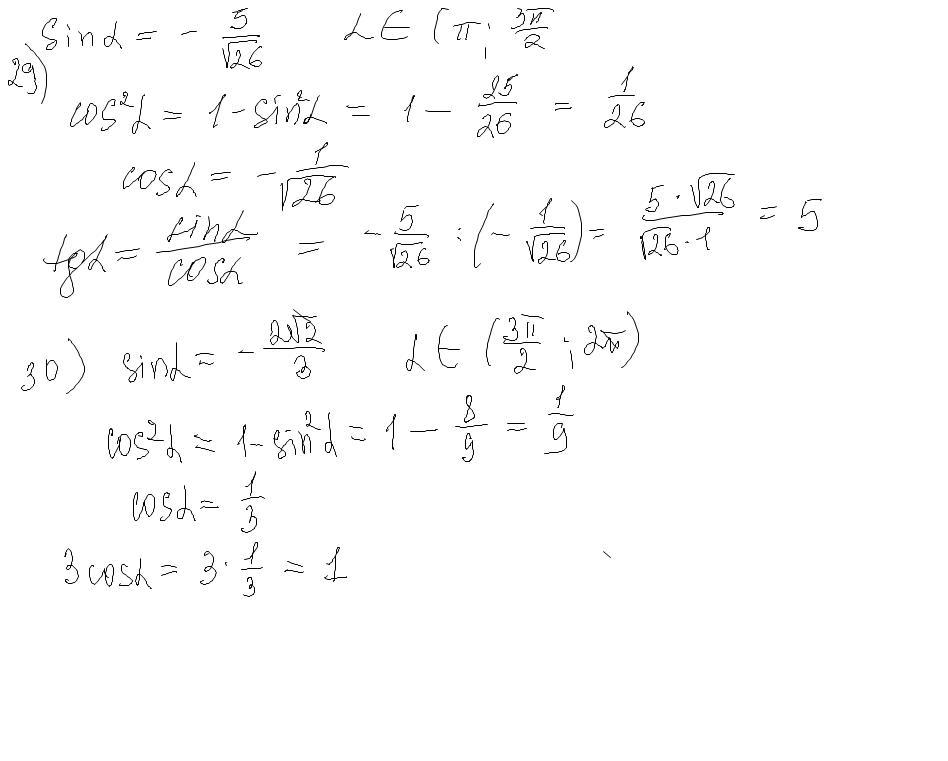 29) sinα = - 5/√26 α ∈ (π; 3π/2
cos²α = 1 - sin²α = 1 - 25/26 = 1/26
cosα = - 1/√26
tgα = sinα/cosα = - 5/√26 : (- 1/√26) = 5·√26/√26·1 = 5
30) sinα = - 2√2/3 α ∈ (3π/2 ; 2π)
cos²α = 1 - sin²α = 1 - 8/9 = 1/9
cosα = 1/3
3cosα = 3 · 1/3 = 1